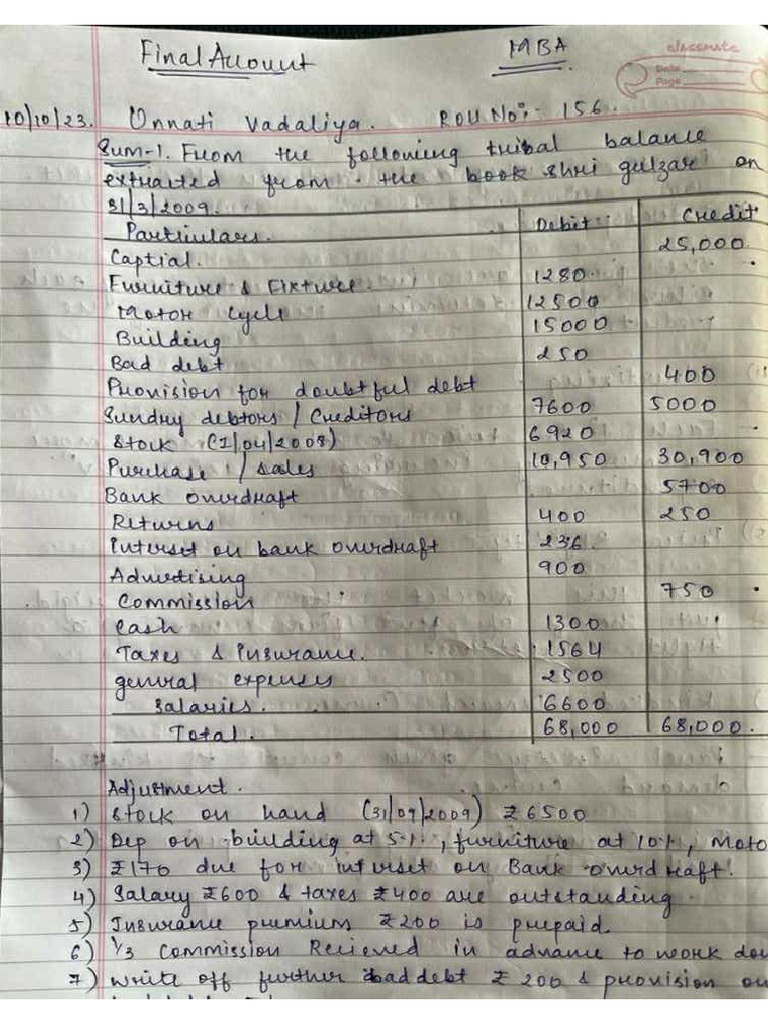 Final Account MBA classmate
Date
Page
10/10/23. Unnati Vadaliya. Roll No:- 156.
Sum-1. From the following tribal balance
extracted from the book shri gulzar on
31/3/2009.
Particulars. Debit: Credit
Captial. 25,000
Furniture & Fixture. 1280
Motor Cycle 12500
Building 15000
Bad debt 250
Provision for doubtful debt 400
Sundry debtors / Creditors 7600 5000
Stock (1/04/2008) 6920
Purchase / Sales 10,950 30,900
Bank overdraft 5700
Returns 400 250
Interset on bank overdraft 236.
Advertising 900
Commission 750
Cash 1300
Taxes & Insurance. 1564
general expenses 2500
Salaries. 6600
Total. 68,000 68,000.
Adjustment.
1) Stock on hand (31/09/2009) ₹6500
2) Dep on building at 5%, furniture at 10%, Moto
3) ₹170 due for interset on Bank overdraft.
4) Salary ₹600 & taxes ₹400 are outstanding.
5) Insurance premium ₹200 is prepaid.
6) 1/3 Commission Recieved in advance to work
7) write off further bad debt ₹200 & provision on